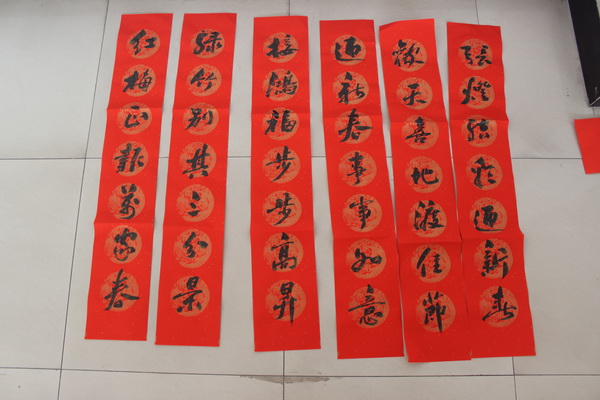 张燈结彩迎新春
歡天喜地渡佳節
迎新春事事如意
接鴻福步步高昇
绿竹别具三分景
红梅正報萬家春